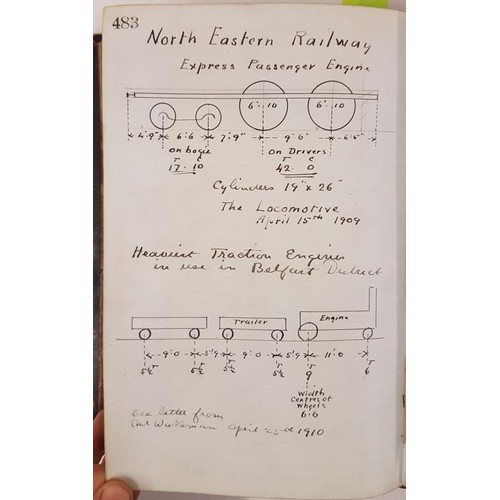 483
North Eastern Railway
Express Passenger Engine
6'. 10 6'. 10
4'.9" 6'.6 7'.9" 9'.6" 6'.5"
on bogie on Drivers
T C T C
17. 10 42. 0
Cylinders 19" x 26"
The Locomotive
April 15th 1909
Heaviest Traction Engines
in use in Belfast District
Trailer Engine
9'.0 5'9 9'.0 5'9 11'.0
5½T 5½T 5½T 5½T 9T 6T
Width
Centres of
Wheels
6.6
see letter from
April 23rd 1910